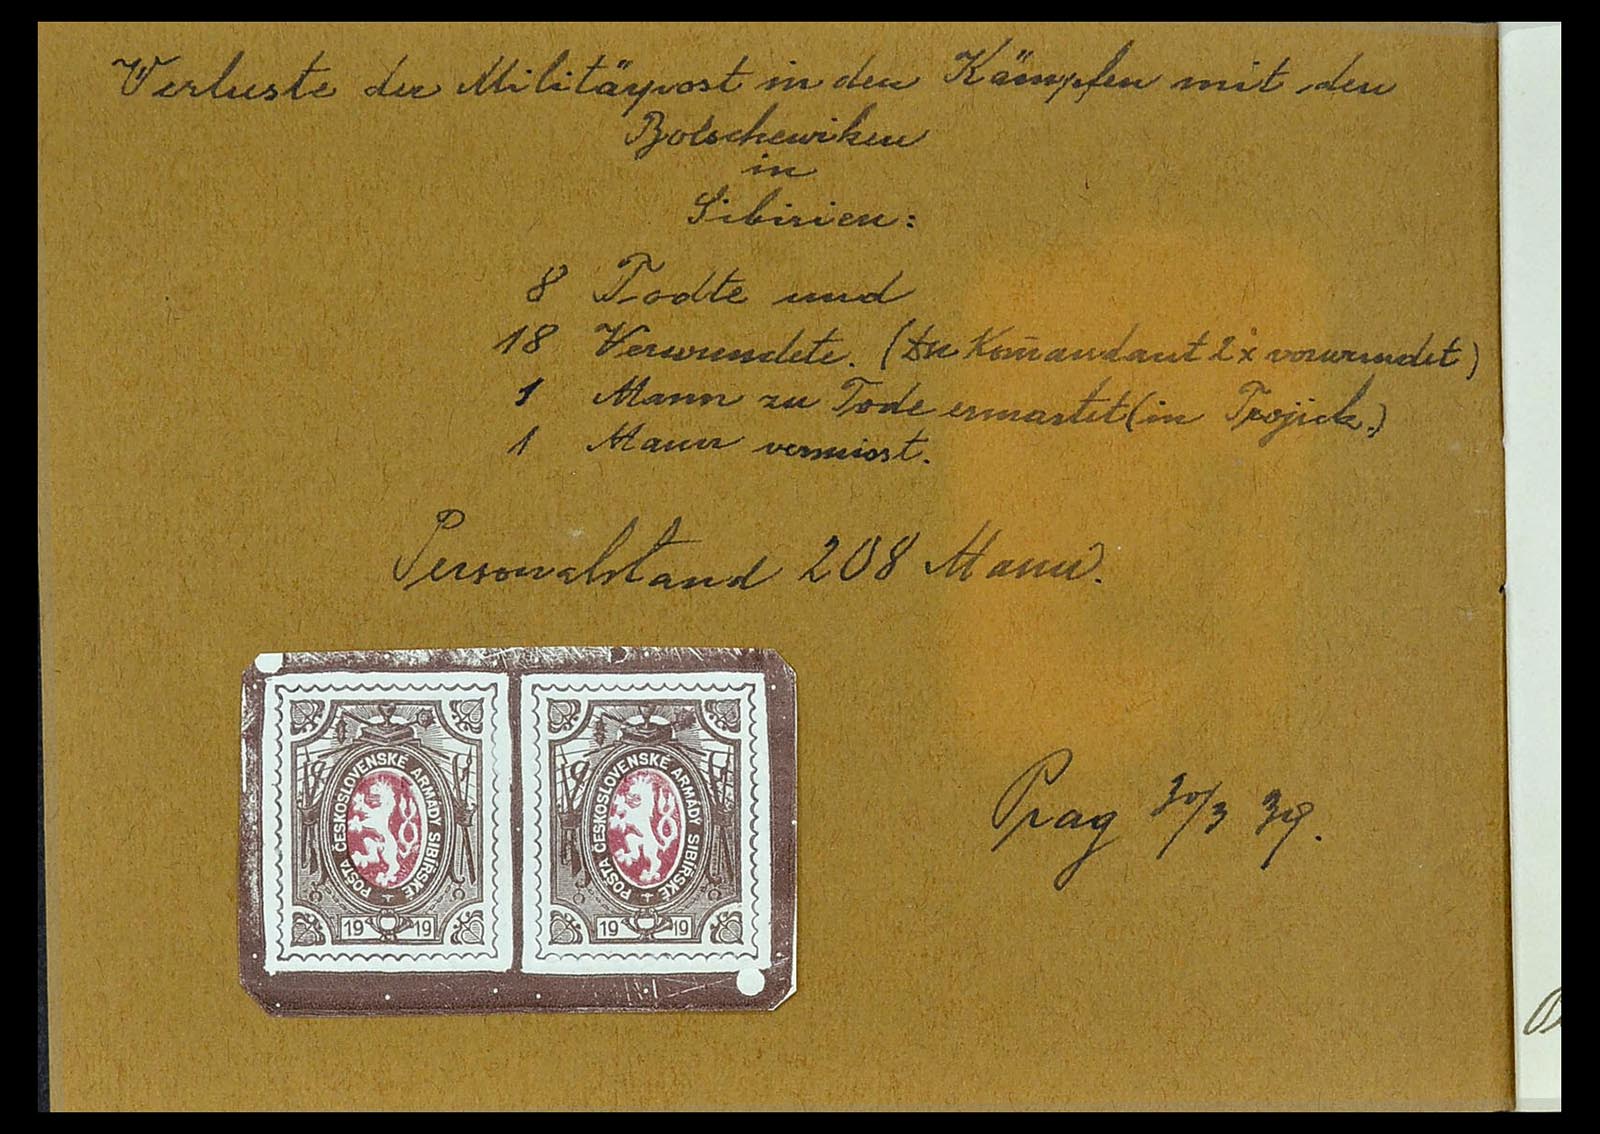 Verluste der Militärpost in den Kämpfen mit den
Bolschewiken
in
Sibirien:
8 Todte und
18 Verwundete. (Der Komandant 2x verwundet)
1 Mann zu Tode ermartet (in Trojick.)
1 Mann vermisst.
Personalstand 208 Mann.
Prag 30/3 39.
POŠTA ČESKOSLOVENSKÉ ARMÁDY SIBIŘSKÉ
1919
POŠTA ČESKOSLOVENSKÉ ARMÁDY SIBIŘSKÉ
1919